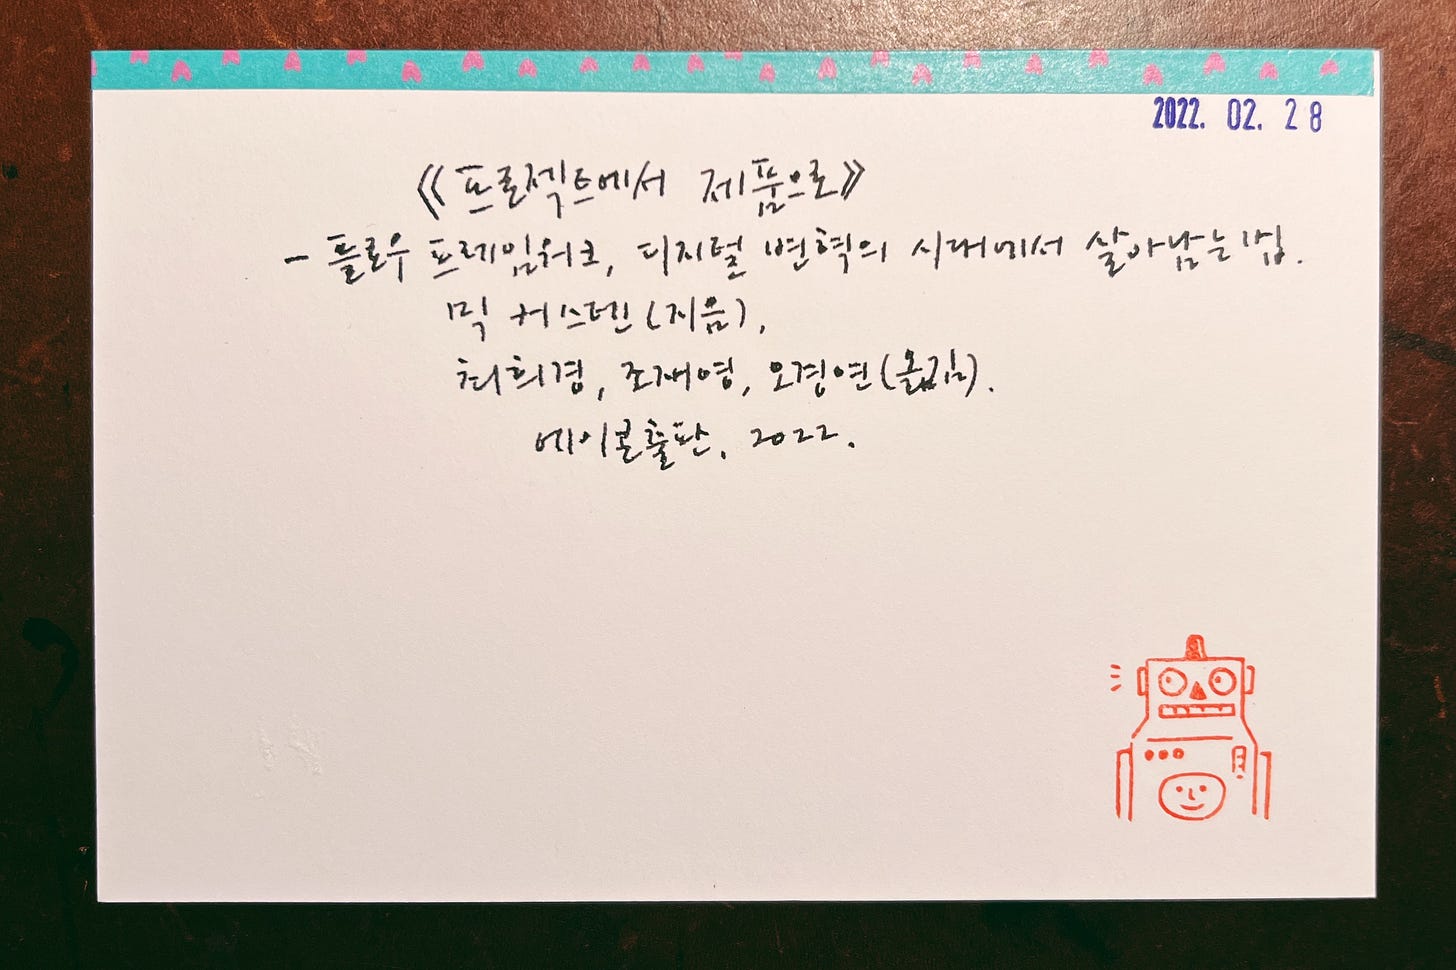 2022. 02. 28
《프로젝트에서 제품으로》
- 플로우 프레임워크, 디지털 변혁의 시대에서 살아남는 법.
믹 커스텐(지음),
최희경, 조재영, 오경연(옮김).
에이콘출판, 2022.